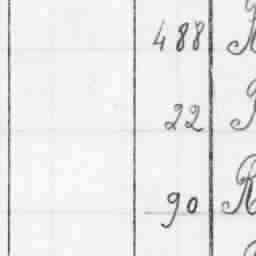 488
22
90 R